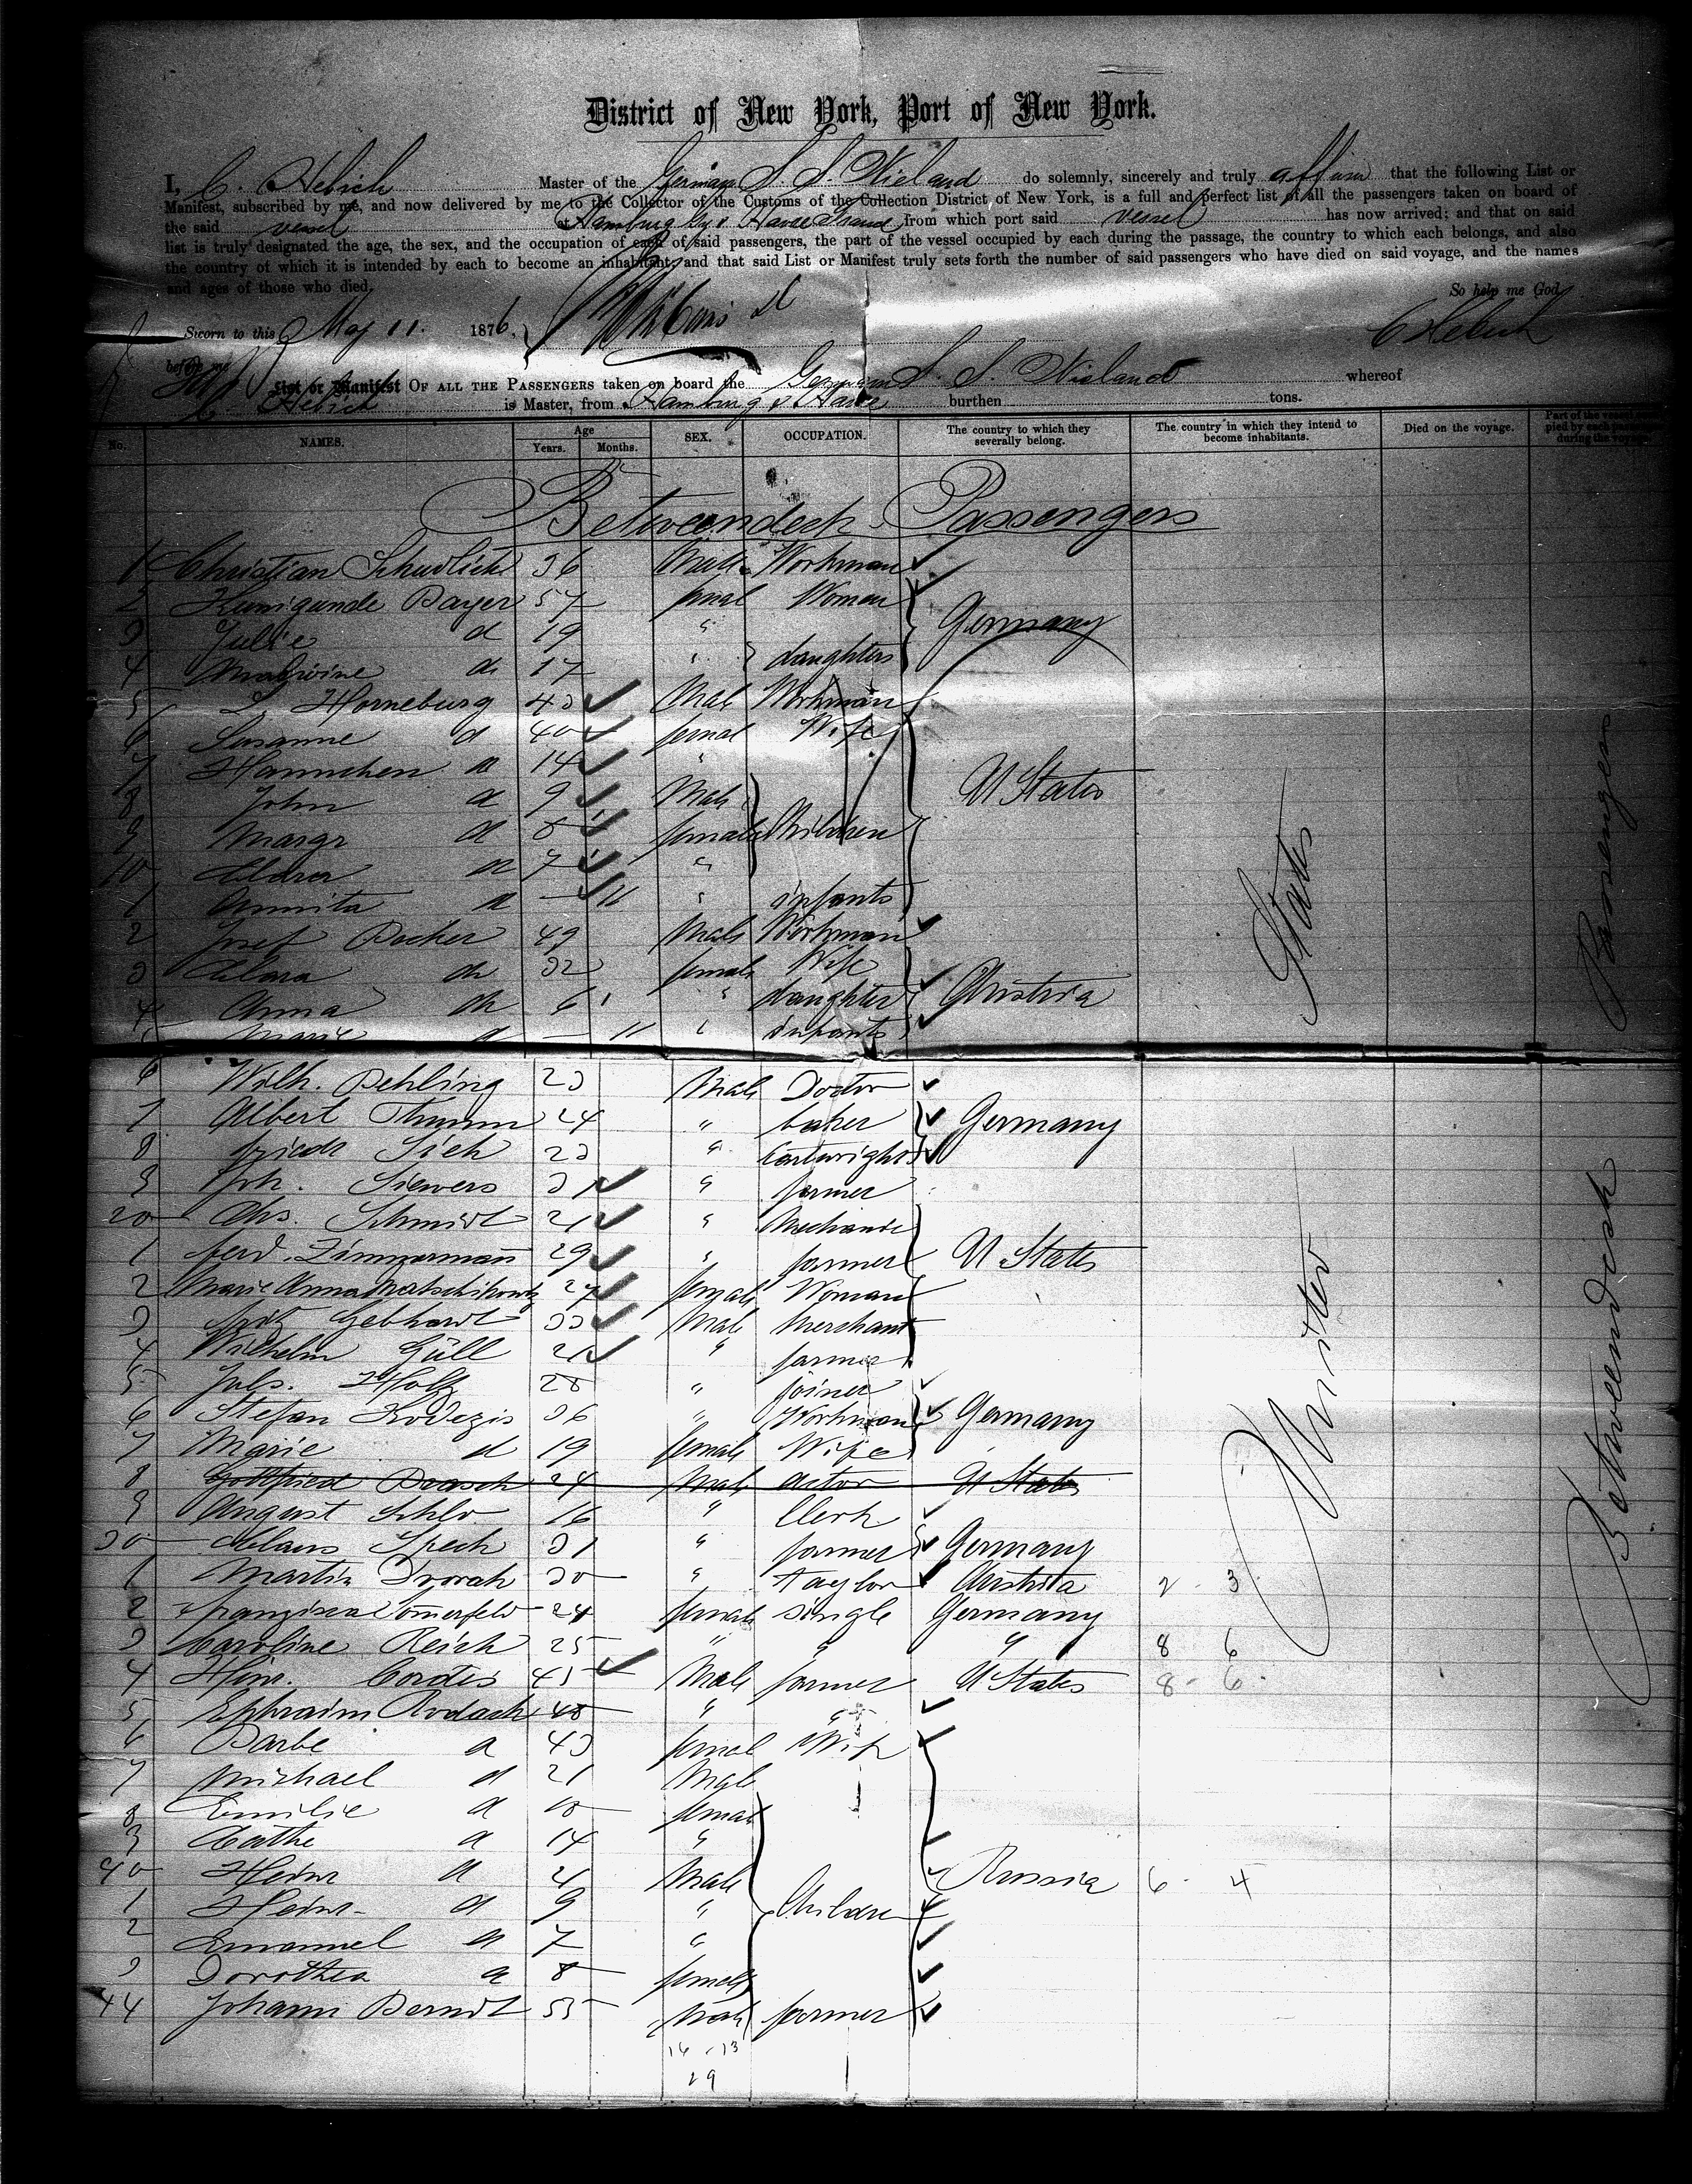 District of New York, Port of New York.
I, C. Hebich Master of the German S. S. Wieland do solemnly, sincerely and truly affirm that the following List or
Manifest, subscribed by me, and now delivered by me to the Collector of the Customs of the Collection District of New York, is a full and perfect list of all the passengers taken on board of
the said vessel at Hamburg & Havre from which port said vessel has now arrived; and that on said
list is truly designated the age, the sex, and the occupation of each of said passengers, the part of the vessel occupied by each during the passage, the country to which each belongs, and also
the country of which it is intended by each to become an inhabitant; and that said List or Manifest truly sets forth the number of said passengers who have died on said voyage, and the names
and ages of those who died. So help me God
Sworn to this May 11. 1876. C Hebich
before me
List or Manifest OF ALL THE PASSENGERS taken on board the German S. S. Wieland whereof
C. Hebich is Master, from Hamburg & Havre burthen tons.
No. NAMES. Age Years. Months. SEX. OCCUPATION. The country to which they severally belong. The country in which they intend to become inhabitants. Died on the voyage. Part of the vessel occupied by each passenger during the voyage
Betweendeck Passengers
1 Christian 36 Male Workman
2 Kunigunde Bayer 57 femal Women Germany
3 Julie d 19 "
4 Malwine d 17 " daughters
5 Horneburg 43 Male Workman
6 Susanne d 40 femal Wife
7 Hannchen d 14 "
8 John d 9 Male U States
9 Margr d 8 female Children
10 Clara d 7 "
1 Annita d — 11 " infants
2 Josef Becher 49 Male Workman
3 Clara d 32 female Wife
4 Anna d 6 " daughter Austria
5 Marie d — 11 " infants
6 Wilh. Behling 23 Male Doctor
7 Albert Thumm 24 " baker Germany
8 Friedr Sieh 23 " Cartwright
9 Joh. Siewers 31 " farmer
20 Chs. Schmidt 21 " Mechanic
1 Ferd. Zimmermann 29 " farmer U States
2 Marie Anna 27 female Woman
3 Fritz Gebhardt 33 Male Merchant
4 Wilhelm Güll 21 " farmer
5 Juls. Holtz 28 " joiner
6 Stefan Kodezis 36 " Workman Germany
7 Marie d 19 female Wife
8 Gottfried Draseh 24 Male actor U States
9 August Schlo 16 " Clerk
30 Claus Spech 31 " farmer Germany
1 Martin Dvorak 30 " Taylor Austria 2 - 3
2 Franzisca Somerfeld 24 female single Germany
3 Caroline Reich 25 " " " 8 6
4 Hinr. Cordes 45 Male farmer U States 8 - 6
5 Ephraim Rodach 48 " "
6 Barbe d 43 femal Wife
7 Michael d 21 Male
8 Emilie d 18 female
9 Cathe d 14 "
40 Heinr d 21 Male Russia 6 - 4
1 Heinr d 9 " Children
2 Emanuel d 7 "
3 Dorothea d 8 female
44 Johann Berndt 55 Male farmer
16 - 13
29
United States
Betweendeck Passengers